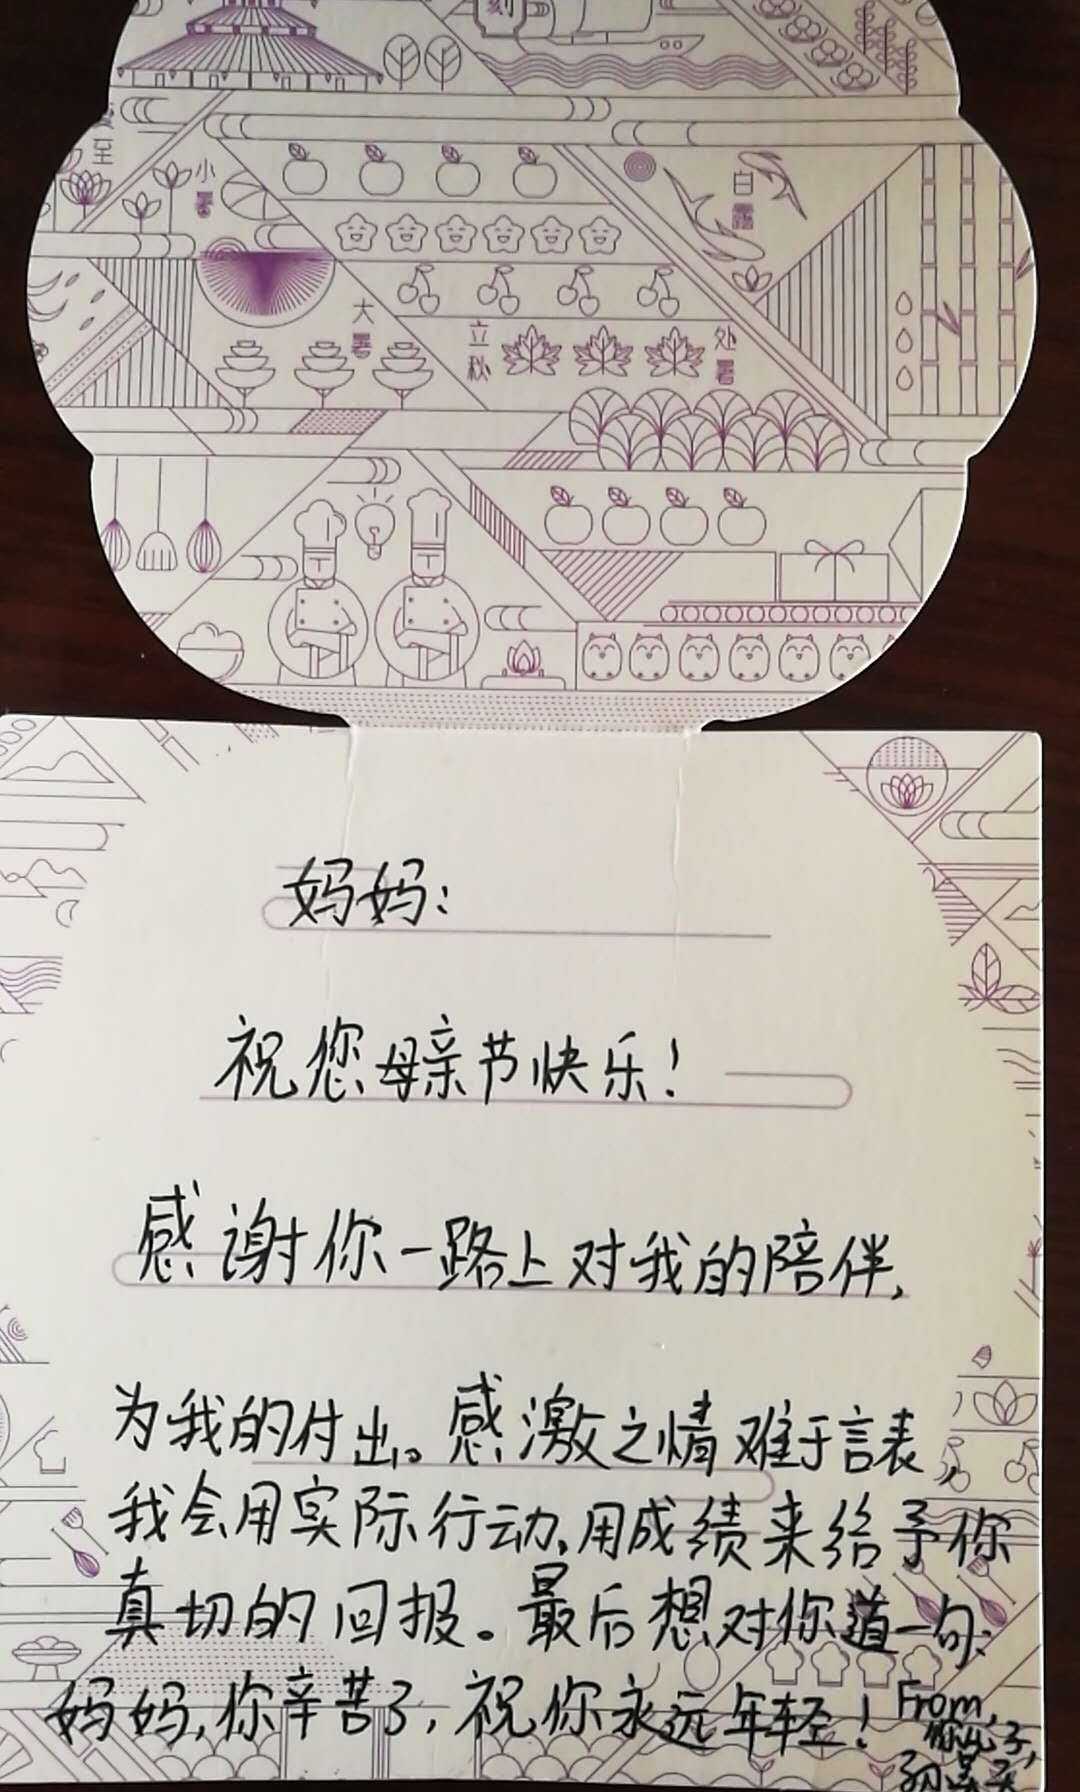 刻
至
小
暑
白
露
大
暑
立
秋
处
暑
妈妈:
祝您母亲节快乐!
感谢你一路上对我的陪伴,
为我的付出。感激之情难于言表,
我会用实际行动,用成绩来给予你
真切的回报。最后想对你道一句:
妈妈,你辛苦了,祝你永远年轻! From,